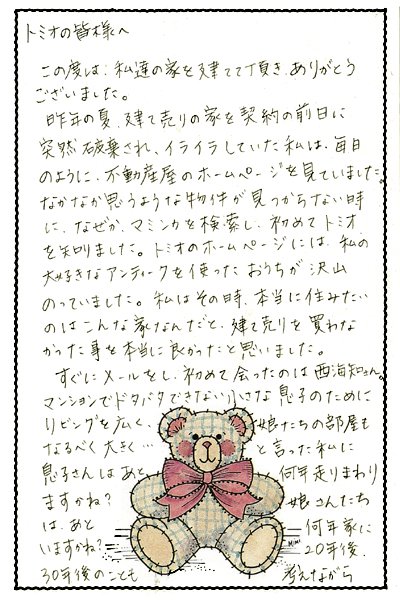 トミオの皆様へ
この度は、私達の家を建てて頂き、ありがとう
ございました。
昨年の夏、建て売りの家を契約の前日に
突然破棄され、イライラしていた私は、毎日
のように、不動産屋のホームページを見ていました。
なかなか思うような物件が見つからない時
に、なぜか、マミンカを検索し、初めてトミオ
を知りました。トミオのホームページには、私の
大好きなアンティークを使ったおうちが沢山
のっていました。私はその時、本当に住みたい
のはこんな家なんだと、建て売りを買わな
かった事を本当に良かったと思いました。
すぐにメールをし、初めて会ったのは西海知さん。
マンションでドタバタできない小さな息子のために
リビングを広く、娘たちの部屋も
なるべく大きく… と言った私に
息子さんはあと、何年走りまわり
ますかね? 娘さんたち
は、あと 何年家に
いますかね? 20年後、
30年後のことも 考えながら
MIMI